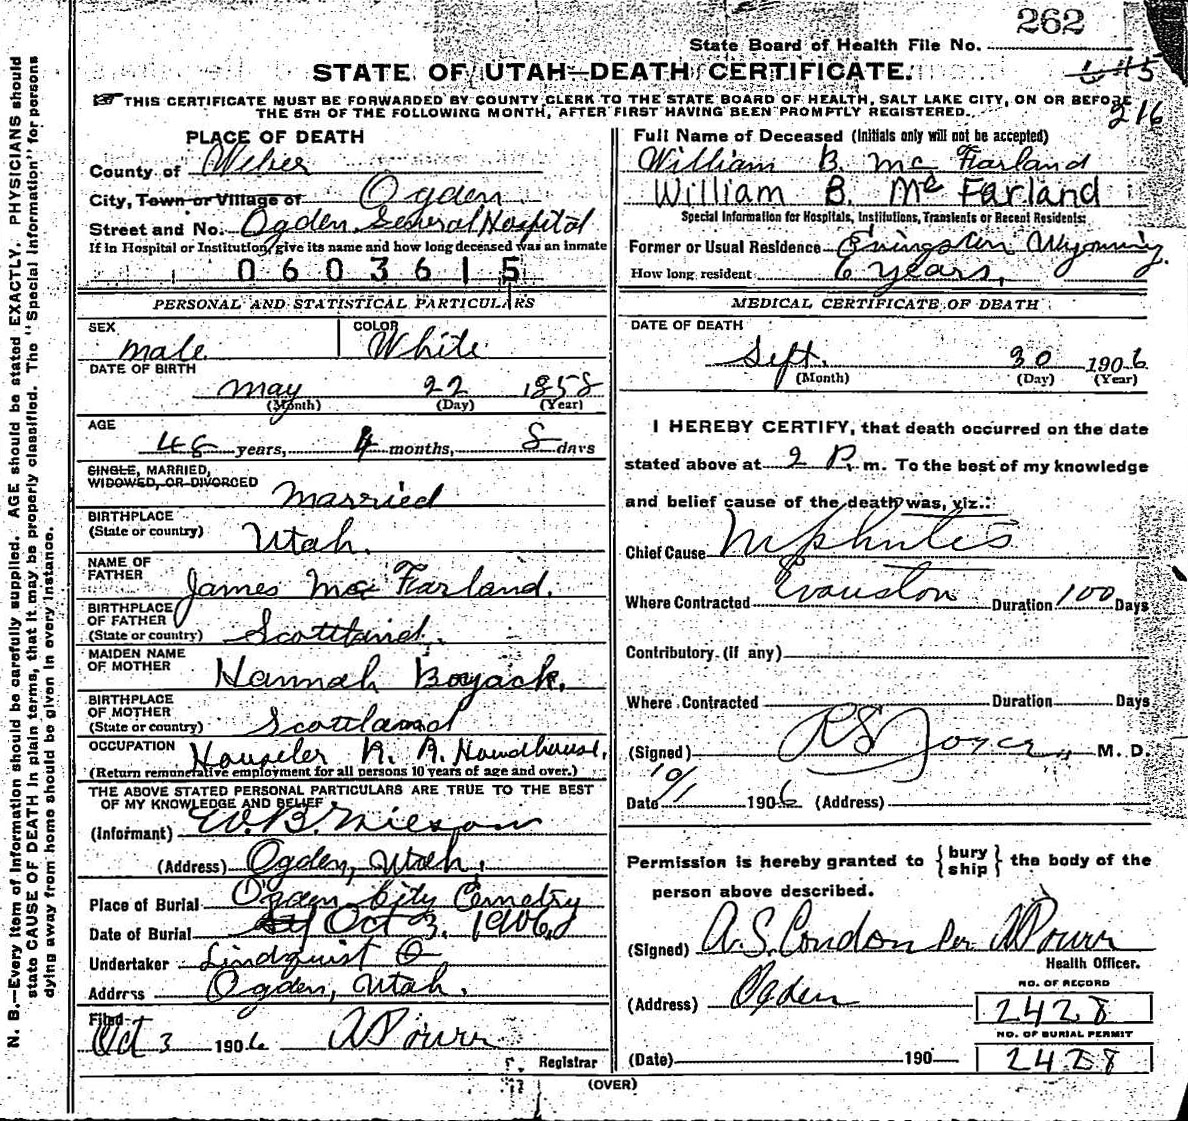 262
State Board of Health File No.
STATE OF UTAH—DEATH CERTIFICATE.
THIS CERTIFICATE MUST BE FORWARDED BY COUNTY CLERK TO THE STATE BOARD OF HEALTH, SALT LAKE CITY, ON OR BEFORE
THE 5TH OF THE FOLLOWING MONTH, AFTER FIRST HAVING BEEN PROMPTLY REGISTERED.
216
PLACE OF DEATH
County of Weber
City, Town or Village of Ogden
Street and No. Ogden General Hospital
If in Hospital or Institution, give its name and how long deceased was an inmate
0603615
PERSONAL AND STATISTICAL PARTICULARS
SEX male COLOR White
DATE OF BIRTH
May 22 1858
(Month) (Day) (Year)
AGE
48 years, 4 months, 8 days
SINGLE, MARRIED,
WIDOWED, OR DIVORCED Married
BIRTHPLACE
(State or country) Utah.
NAME OF
FATHER James Mc Farland.
BIRTHPLACE
OF FATHER
(State or country) Scottland.
MAIDEN NAME
OF MOTHER Hannah Boyack.
BIRTHPLACE
OF MOTHER
(State or country) Scottland
OCCUPATION R. R.
(Return remunerative employment for all persons 10 years of age and over.)
THE ABOVE STATED PERSONAL PARTICULARS ARE TRUE TO THE BEST
OF MY KNOWLEDGE AND BELIEF
(Informant) W. B.
(Address) Ogden, Utah.
Place of Burial Ogden City Cemetry
Date of Burial Oct 3. 1906
Undertaker Lindquist
Address Ogden, Utah.
Filed
Oct 3 1906
Registrar
Full Name of Deceased (Initials only will not be accepted)
William B. Mc Farland
William B. Mc Farland
Special Information for Hospitals, Institutions, Transients or Recent Residents:
Former or Usual Residence Wyoming.
How long resident 6 years,
MEDICAL CERTIFICATE OF DEATH
DATE OF DEATH
Sept. 30 1906
(Month) (Day) (Year)
I HEREBY CERTIFY, that death occurred on the date
stated above at 2 P. m. To the best of my knowledge
and belief cause of the death was, viz.:
Chief Cause Nephritis
Where Contracted Evanston Duration 100 Days
Contributory (if any)
Where Contracted Duration Days
(Signed) R S Joyce M. D.
Date 10/1 1906 (Address)
Permission is hereby granted to { bury
ship } the body of the
person above described.
(Signed) A. S. Condon Per
Health Officer.
(Address) Ogden
NO. OF RECORD
2428
NO. OF BURIAL PERMIT
(Date) 190 2428
(OVER)
N. B.—Every item of information should be carefully supplied. AGE should be stated EXACTLY. PHYSICIANS should
state CAUSE OF DEATH in plain terms, that it may be properly classified. The "Special Information" for persons
dying away from home should be given in every instance.